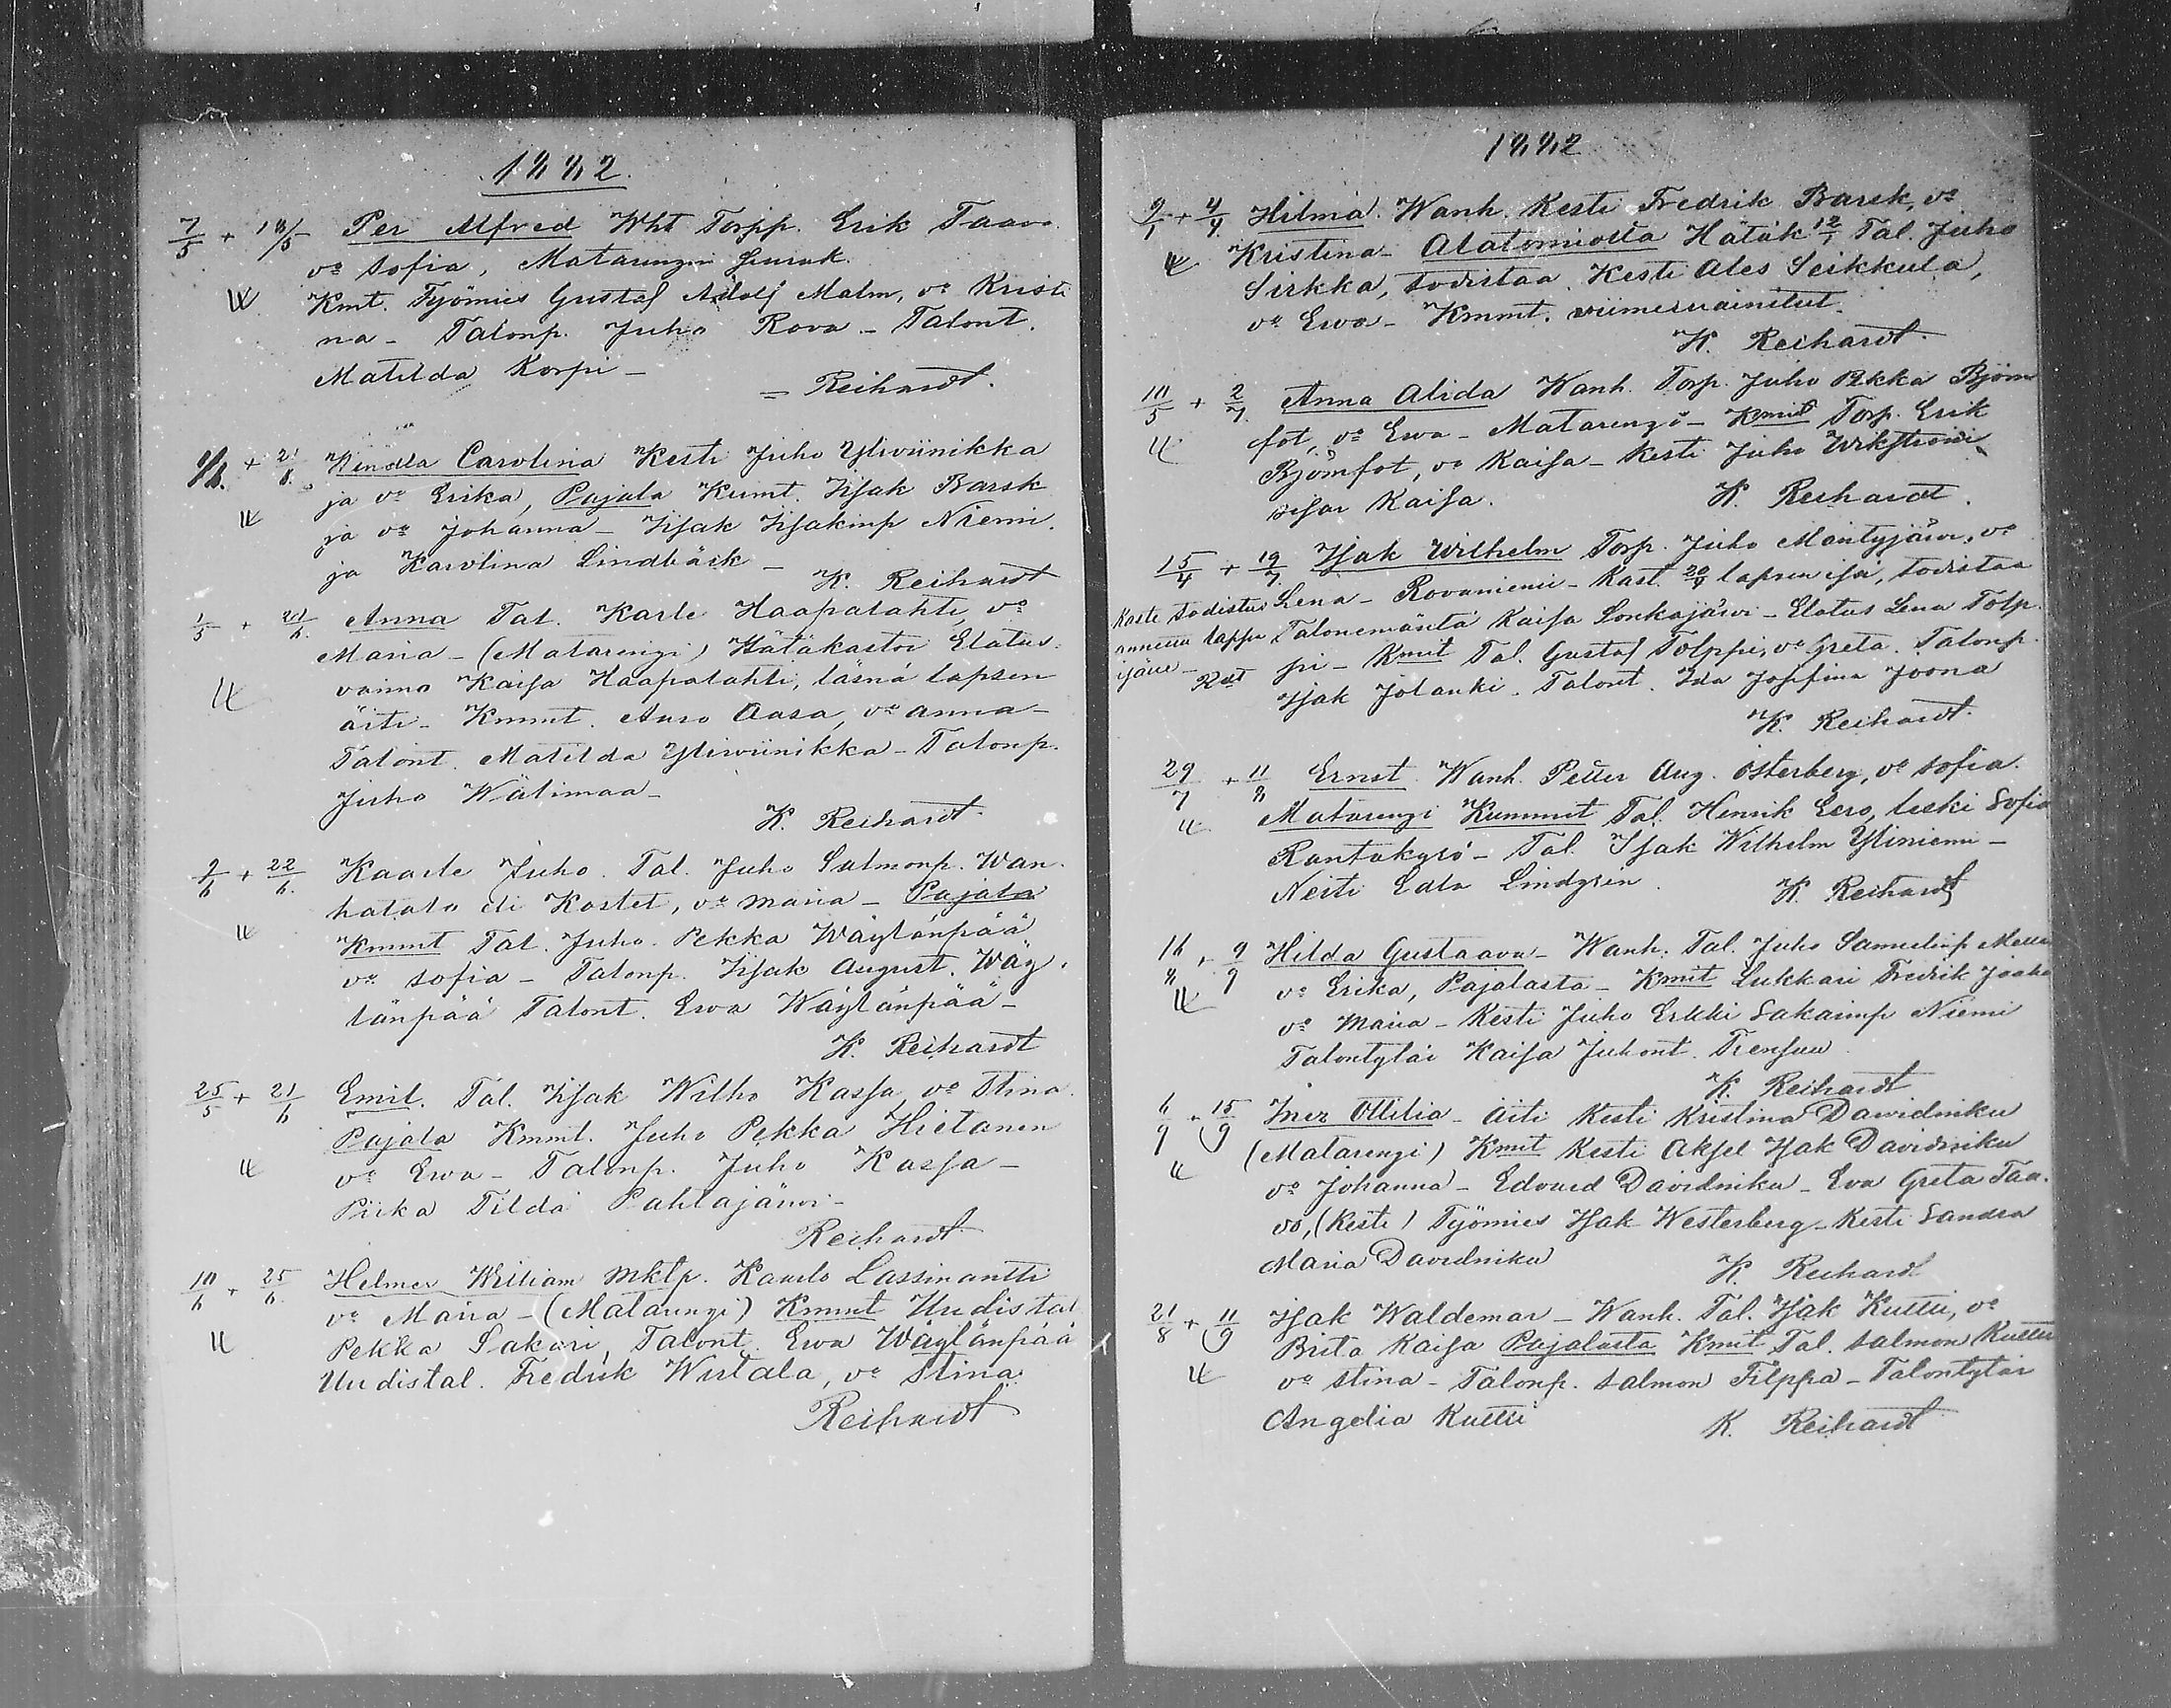 1882.
7/5 + 18/5 Per Alfred Wht Torpp. Erik Taavo
vo Sofia, Matarengin
Kmt. Työmies Gustaf Adolf Malm, vo Kristi
na - Talonp. Juho Rova - Talont.
Matilda Korpi -
= Reihardt.
+ 21/6 Carolina Kesti Juho Yliviinikka
ja vo Erika, Pajala Kummt. Iisak Barsk
ja vo Johanna - Iisak Iisakinp Niemi.
ja Karolina Lindbäck -
K. Reihardt
1/5 + 21/6. Anna Tal. Karle Haapalahti, vo
Maria - (Matarengi) Hätäkastoi Elatus.
vaimo Kaisa Haapalahti, läsnä lapsen
äiti - Kmmt. Aaro Aasa, vo Anna -
Talont. Matilda Yliviinikka - Talonp.
Juho Wälimaa -
K. Reihardt.
9/6 + 22/6. Kaarle Juho. Tal. Juho Salmonp. Wan
hatalo eli Kostet, vo Maria - Pajala
Kmmt Tal. Juho Pekka Wäylänpää
vo Sofia - Talonp. Iisak August. Wäy
länpää Talont. Ewa Wäylänpää -
K. Reihardt
25/5 + 21/6 Emil. Tal. Iisak Wilho Kassa vo Stina.
Pajala Kmmt. Juho Pekka Hietanen
vo Ewa - Talonp. Juho Kassa -
Piika Tilda Pahtajärwi -
Reihardt
10/6 + 25/6. Helmer William Mktp. Lassinantti
vo Maria - (Matarengi) Kmmt Uudistal
Pekka Sakari, Talont. Ewa Wäylänpää
Uudistal. Fredrik Wirtala, vo Stina.
Reihardt
1882
9/1 + 4/4 Hilma. Wanh. Kesti Fredrik Barsk, vo
Kristina - Alatorniolta Hätäk 12/1 Tal. Juho
Sirkka, todistaa. Kesti Ales Seikkula,
vo Ewa - Kmmt. viimemainitut.
K. Reihardt.
10/5 + 2/7. Anna Alida Wanh. Torp. Juho Pekka Björn
fot, vo Ewa - Matarengi - Kmit Torp. Erik
Björnfot, vo Kaisa - Kesti Juho Wikström
sisar Kaisa. K. Reihardt.
15/4 + 19/7. Isak Wilhelm Torp. Juho Mäntyjärvi, vo
Kaste todistus Lena - Rovaniemi - Kast. 20/4 lapsen isä, todistaa
annettu Talonemäntä Kaisa Lonkajärvi - Elatus Lena Tolp.
pi - Kmit Tal. Gustaf Tolppi, vo Greta. Talonp.
Isak Jolanki. Talont. Ida Josefina Joona
K. Reihardt.
29/7 + 11/8 Ernst. Wanh. Petter Aug. Österberg, vo Sofia.
Matarengi Kummit Tal. Henrik Eero, leski Sofia
Rantakyrö - Tal. Isak Wilhelm Yliniemi -
Neiti Edla Lindgrén. K. Reihardt
16/8 + 9/9 Hilda Gustaava - Wanh. Tal. Juho Samulinp
vo Erika, Pajalasta - Kmit Lukkari Fredrik
vo Maria - Kesti Juho Erkki Sakarinp Niemi
Talontytär Kaisa Juhont.
K. Reihardt
6/9 + 15/9 Inez Ottilia - äiti Kesti Kristina Dawidniku
(Matarengi) Kmit Kesti Aksel Isak Davidniku
vo Johanna - Edvard Davidniku - Eva Greta Taa.
vo, (Kesti) Työmies Isak Westerberg - Kesti Sandra
Maria Davidniku K. Reihardt
21/8 + 11/9 Isak Waldemar - Wanh. Tal. Isak Kuttu, vo
Brita Kaisa Pajalasta Kmit Tal. Salmon Kuttu
vo Stina - Talonp. Salmon Filppa - Talontytär
Angelia Kuttu K. Reihardt